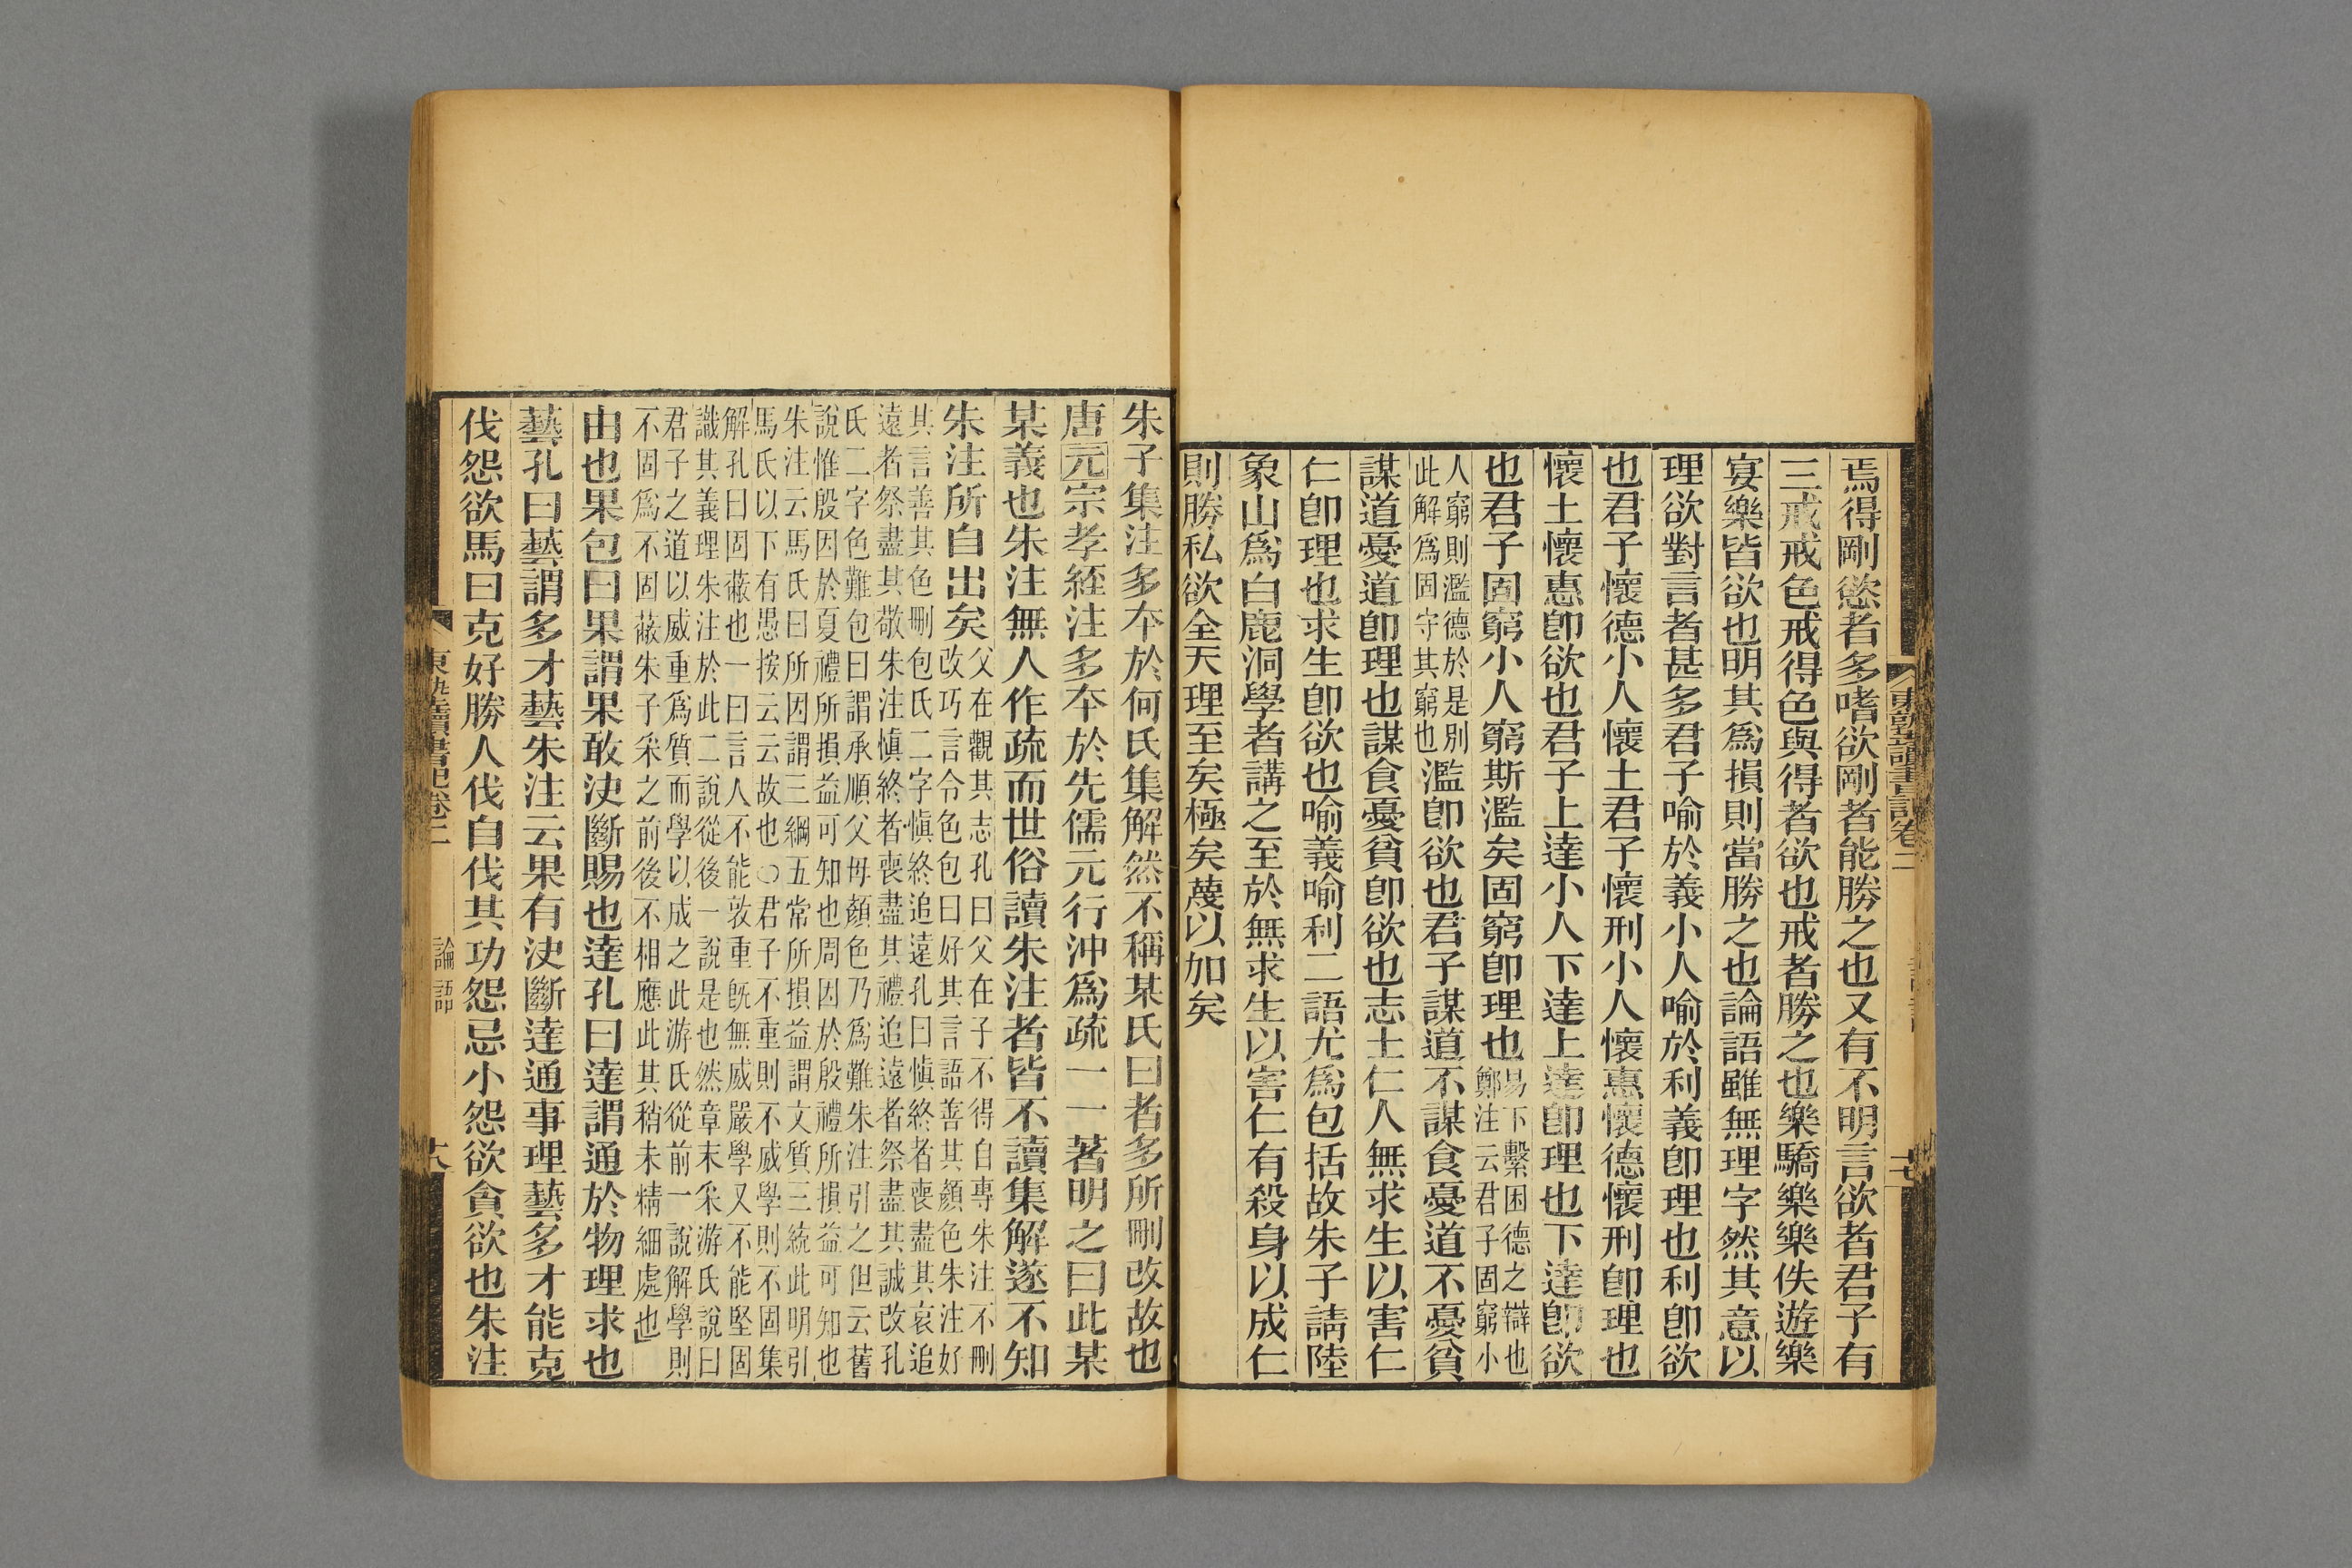 東塾讀書記卷二
十七
焉得剛慾者多嗜欲剛者能勝之也又有不明言欲者君子有
三戒戒色戒得色與得者欲也戒者勝之也樂驕樂樂佚遊樂
宴樂皆欲也明其爲損則當勝之也論語雖無理字然其意以
理欲對言者甚多君子喻於義小人喻於利義卽理也利卽欲
也君子懷德小人懷土君子懷刑小人懷惠懷德懷刑卽理也
懷土懷惠卽欲也君子上達小人下達上達卽理也下達卽欲
也君子固窮小人窮斯濫矣固窮卽理也易下繫困德之辯也
鄭注云君子固窮小
人窮則濫德於是別
此解爲固守其窮也濫卽欲也君子謀道不謀食憂道不憂貧
謀道憂道卽理也謀食憂貧卽欲也志士仁人無求生以害仁
仁卽理也求生卽欲也喻義喻利二語尤爲包括故朱子請陸
象山爲白鹿洞學者講之至於無求生以害仁有殺身以成仁
則勝私欲全天理至矣極矣蔑以加矣
朱子集注多夲於何氏集解然不稱某氏曰者多所刪改故也
唐元宗孝經注多夲於先儒元行沖爲疏一一著明之曰此某
某義也朱注無人作疏而世俗讀朱注者皆不讀集解遂不知
朱注所自出矣父在觀其志孔曰父在子不得自專朱注不刪
改巧言令色包曰好其言語善其顏色朱注好
其言善其色刪包氏二字愼終追遠孔曰愼終者喪盡其哀追
遠者祭盡其敬朱注愼終者喪盡其禮追遠者祭盡其誠改孔
氏二字色難包曰謂承順父母顏色乃爲難朱注引之但云舊
說惟殷因於夏禮所損益可知也周因於殷禮所損益可知也
朱注云馬氏曰所因謂三綱五常所損益謂文質三統此明引
馬氏以下有愚按云云故也○君子不重則不威學則不固集
解孔曰固蔽也一曰言人不能敦重旣無威嚴學又不能堅固
識其義理朱注於此二說從後一說是也然章末采游氏說曰
君子之道以威重爲質而學以成之此游氏從前一說解學則
不固爲不固蔽朱子采之前後不相應此其稍未精細處也
由也果包曰果謂果敢決斷賜也達孔曰達謂通於物理求也
藝孔曰藝謂多才藝朱注云果有決斷達通事理藝多才能克
伐怨欲馬曰克好勝人伐自伐其功怨忌小怨欲貪欲也朱注
東塾讀書記卷二
論語
十八